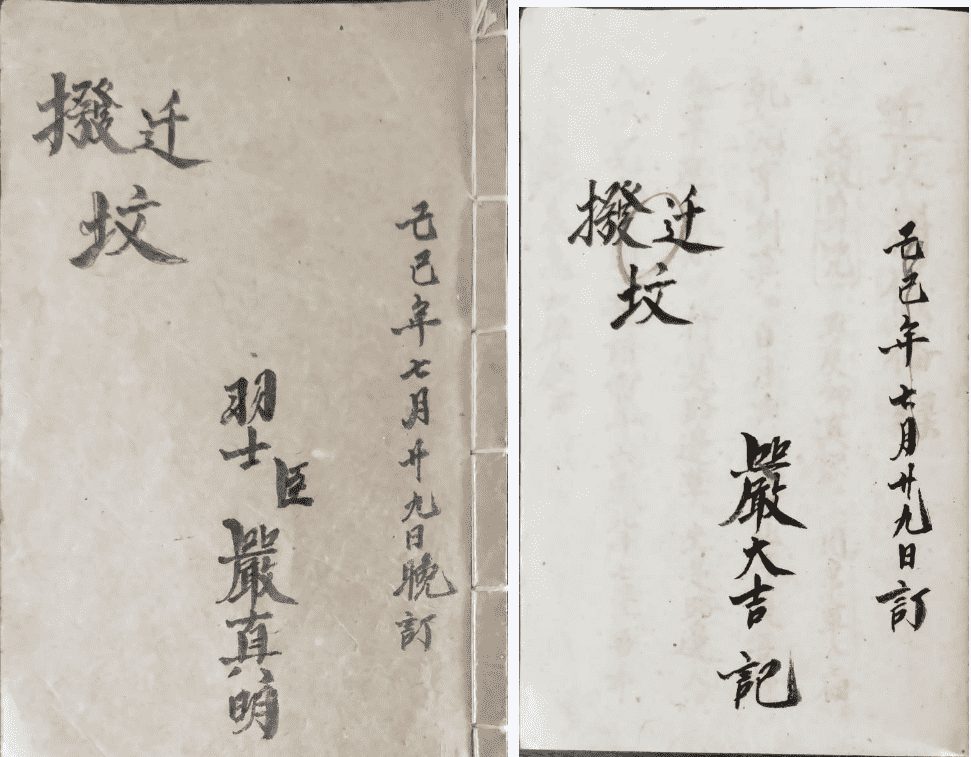 己巳年七月廿九日晚訂
羽士臣嚴真明
迁撥坟
己巳年七月廿九日訂
嚴大吉記
迁撥坟